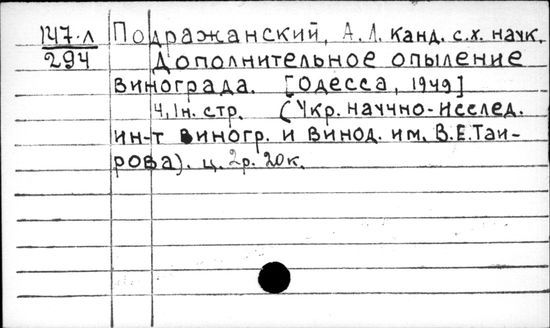 147·л Подражанский, А.Л. канд. с.х. наук.
294 Дополнительное опыление
винограда. [Одесса, 1949]
4,1н. стр. (Укр. научно-исслед.
ин-т виногр. и винод. им. В.Е.Таи-
рова). ц. 2р. 20к.